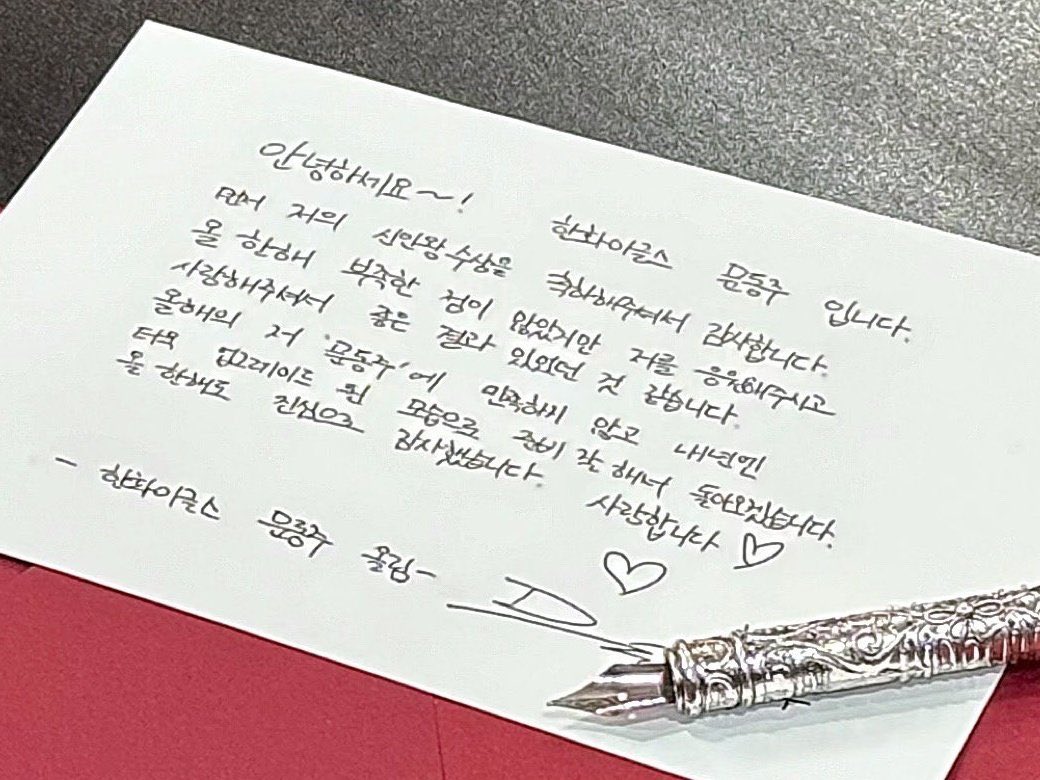 안녕하세요~! 한화이글스 문동주 입니다.
먼저 저의 신인왕 수상을 축하해주셔서 감사합니다.
올 한해 부족한 점이 많았지만 저를 응원해주시고
사랑해주셔서 좋은 결과 있었던 것 같습니다.
올해의 저 '문동주'에 만족하지 않고 내년엔
더욱 업그레이드 된 모습으로 준비 잘 해서 돌아오겠습니다.
올 한해도 진심으로 감사했습니다. 사랑합니다 ♡
♡
- 한화이글스 문동주 올림 -